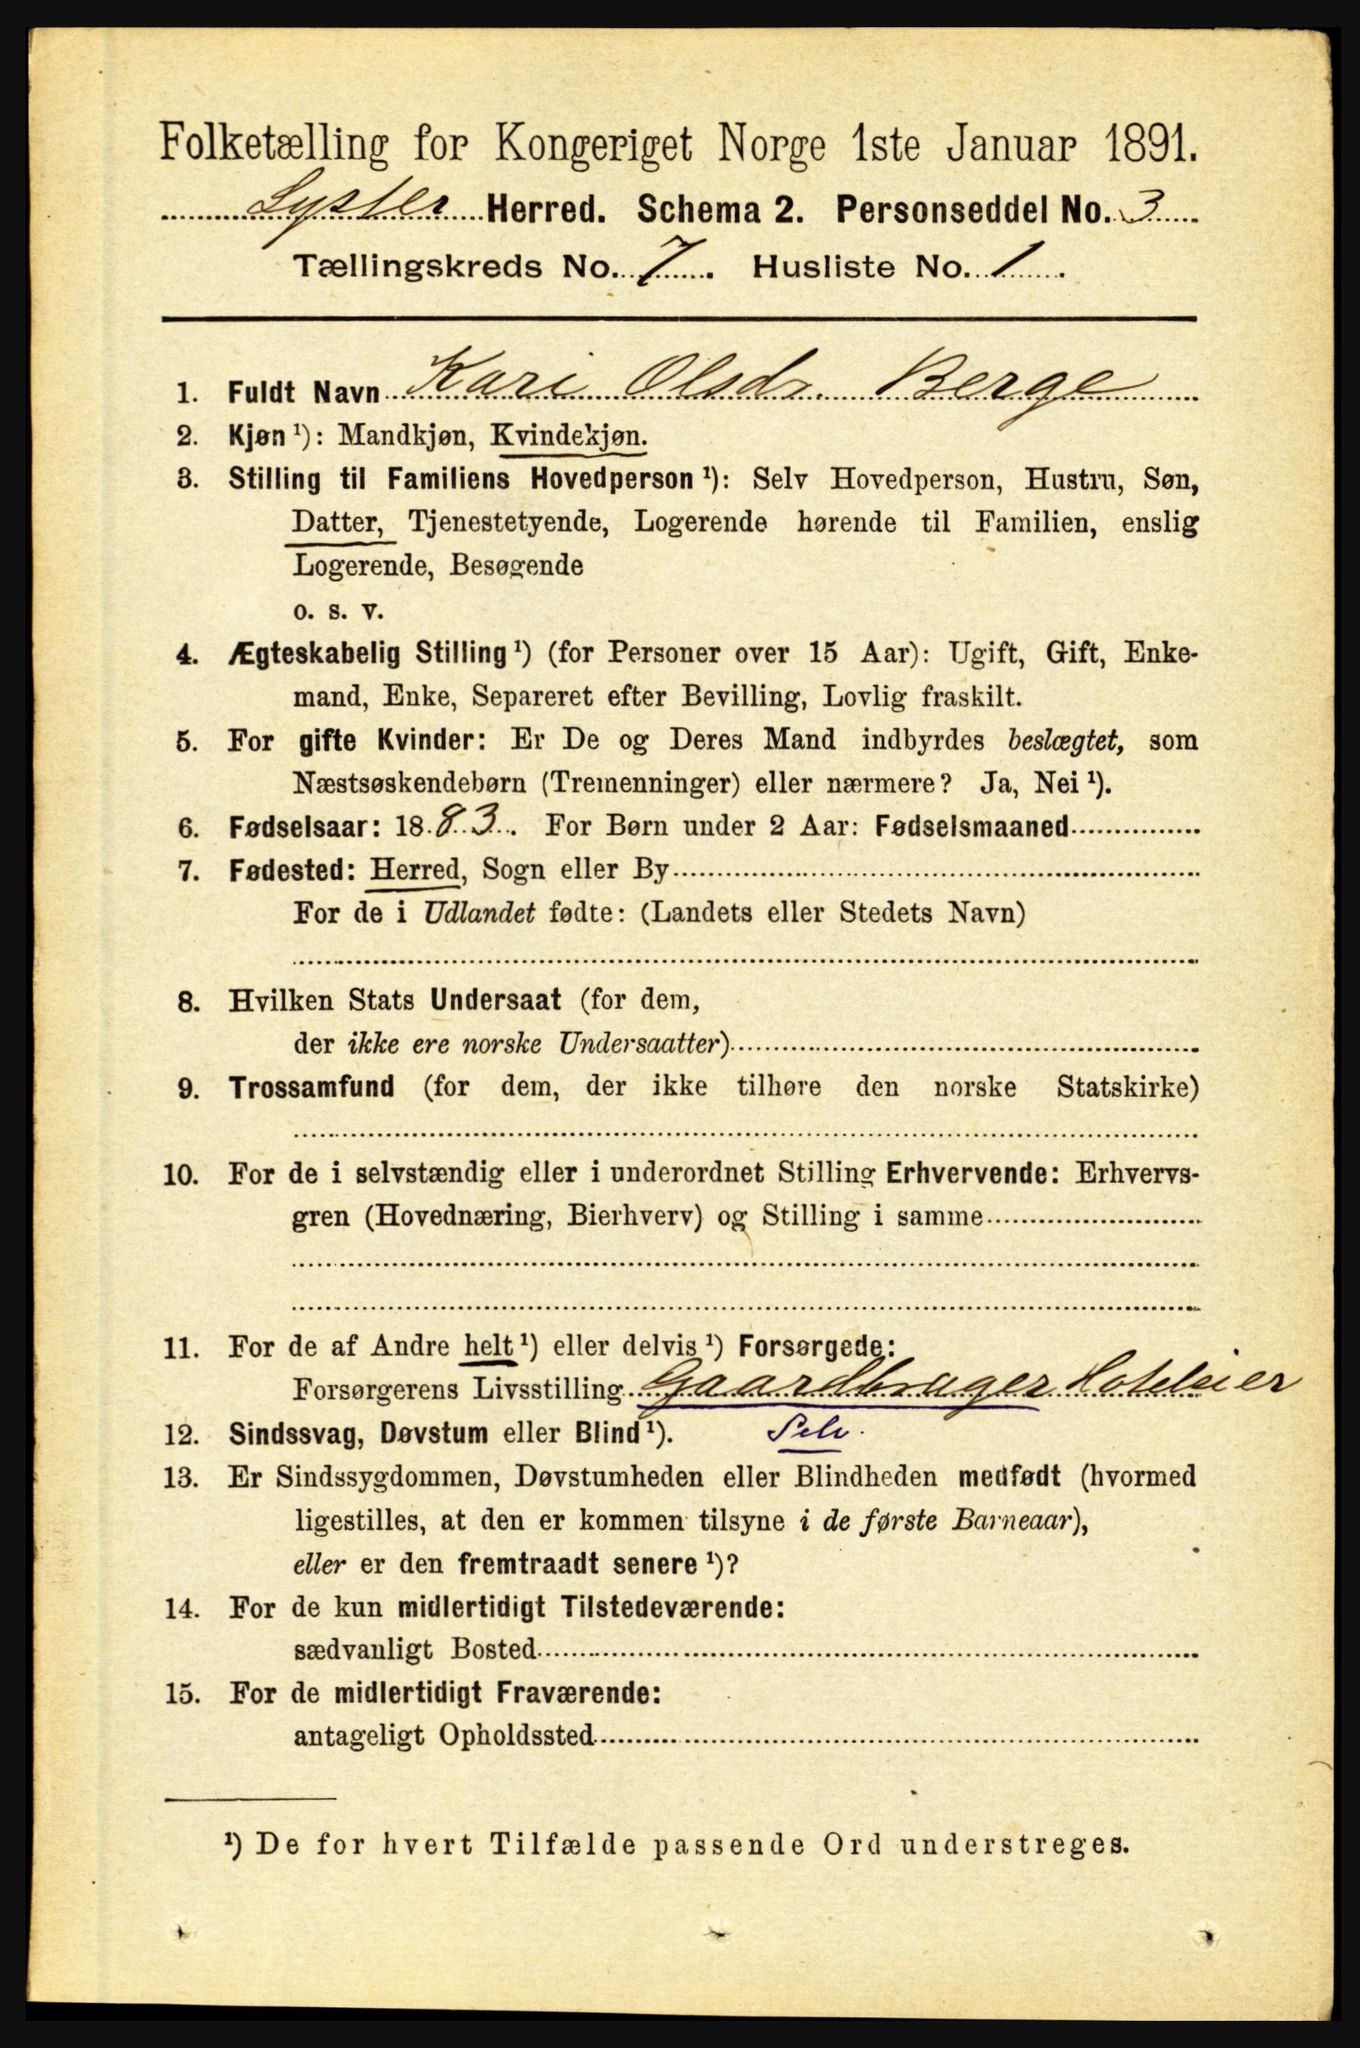 Folketælling for Kongeriget Norge 1ste Januar 1891.
Lyster Herred. Schema 2. Personseddel No. 3
Tællingskreds No. 7. Husliste No. 1.
1. Fuldt Navn Kari Olsdr. Berge
2. Kjøn ¹): Mandkjøn, Kvindekjøn.
3. Stilling til Familiens Hovedperson ¹): Selv Hovedperson, Hustru, Søn,
Datter, Tjenestetyende, Logerende hørende til Familien, enslig
Logerende, Besøgende
o. s. v.
4. Ægteskabelig Stilling ¹) (for Personer over 15 Aar): Ugift, Gift, Enke-
mand, Enke, Separeret efter Bevilling, Lovlig fraskilt.
5. For gifte Kvinder: Er De og Deres Mand indbyrdes beslægtet, som
Næstsøskendebørn (Tremenninger) eller nærmere? Ja, Nei ¹).
6. Fødselsaar: 1883. For Børn under 2 Aar: Fødselsmaaned
7. Fødested: Herred, Sogn eller By
For de i Udlandet fødte: (Landets eller Stedets Navn)
8. Hvilken Stats Undersaat (for dem,
der ikke ere norske Undersaatter)
9. Trossamfund (for dem, der ikke tilhøre den norske Statskirke)
10. For de i selvstændig eller i underordnet Stilling Erhvervende: Erhvervs-
gren (Hovednæring, Bierhverv) og Stilling i samme
11. For de af Andre helt ¹) eller delvis ¹) Forsørgede:
Forsørgerens Livsstilling Gaardbruger Hotelleier
12. Sindssvag, Døvstum eller Blind ¹). Selv.
13. Er Sindssygdommen, Døvstumheden eller Blindheden medfødt (hvormed
ligestilles, at den er kommen tilsyne i de første Barneaar),
eller er den fremtraadt senere ¹)?
14. For de kun midlertidigt Tilstedeværende:
sædvanligt Bosted
15. For de midlertidigt Fraværende:
antageligt Opholdssted
¹) De for hvert Tilfælde passende Ord understreges.